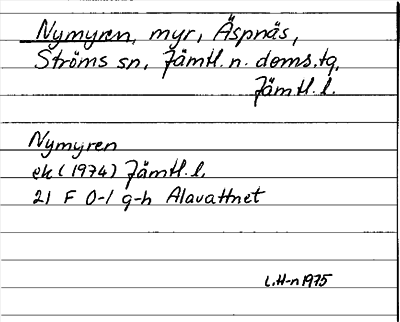 Nymyren, myr, Äspnäs,
Ströms sn, Jämtl. n. doms.tg,
Jämtl. l.
Nymyren
ek (1974) Jämtl. l.
21 F 0-1 g-h Alavattnet
L.H-n 1975